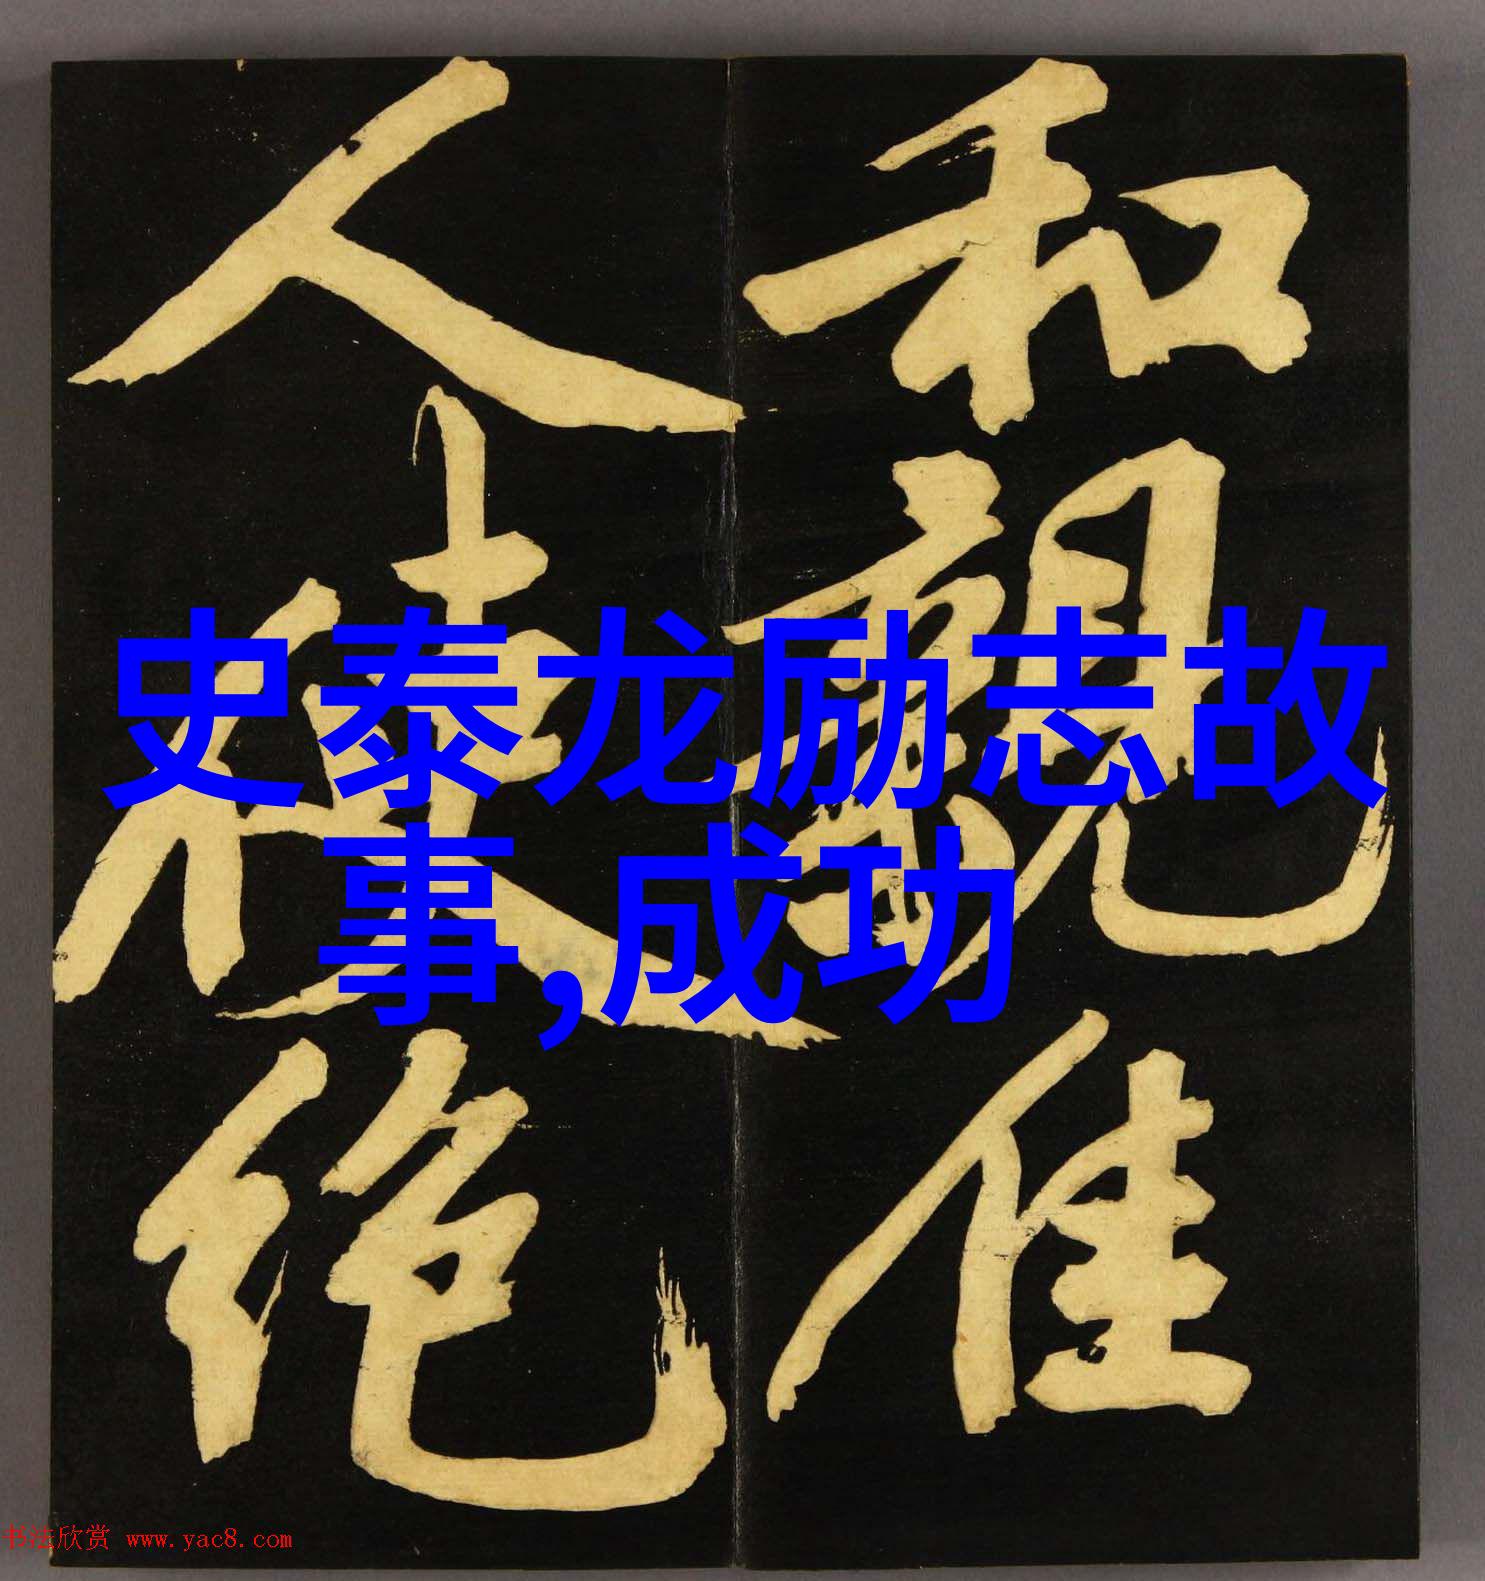 和親佳
人使絕
史泰龙励志故
事,成功
书法欣赏 www.yac8.com